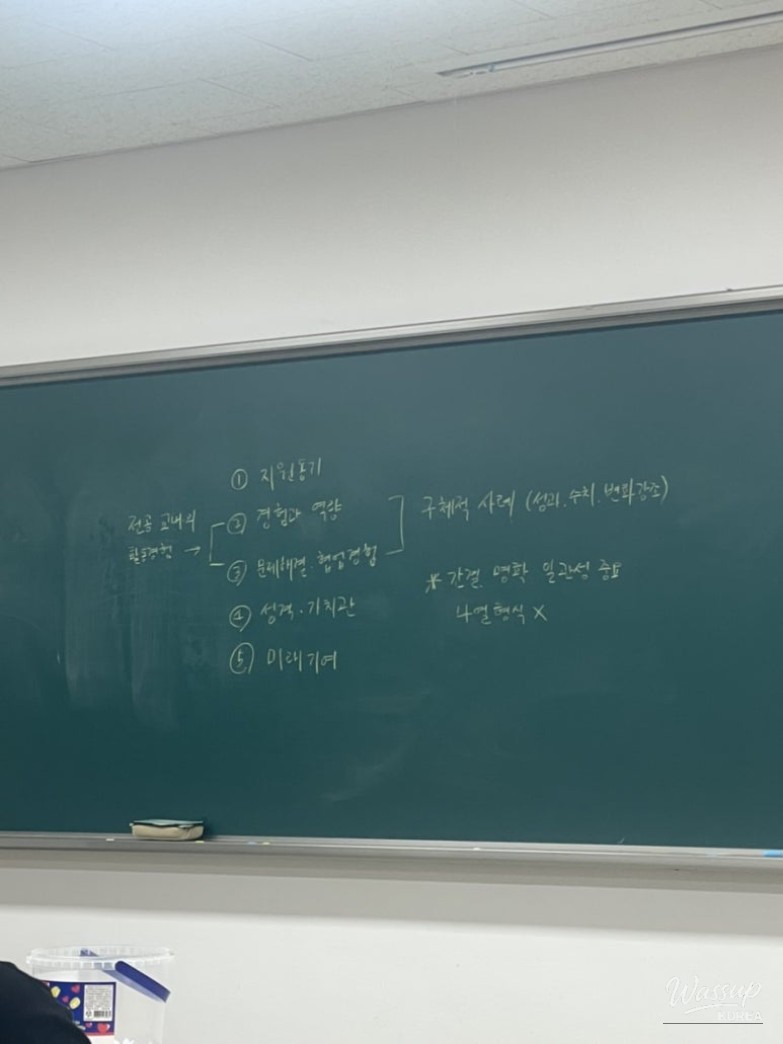 ① 지원동기
전공 교내외
활동경험 →
② 경험과 역량
③ 문제해결·협업경험
구체적 사례 (성과·수치·변화강조)
④ 성격·가치관
⑤ 미래기여
* 간결 명확 일관성 중요
나열형식 X
Wassup
KOREA